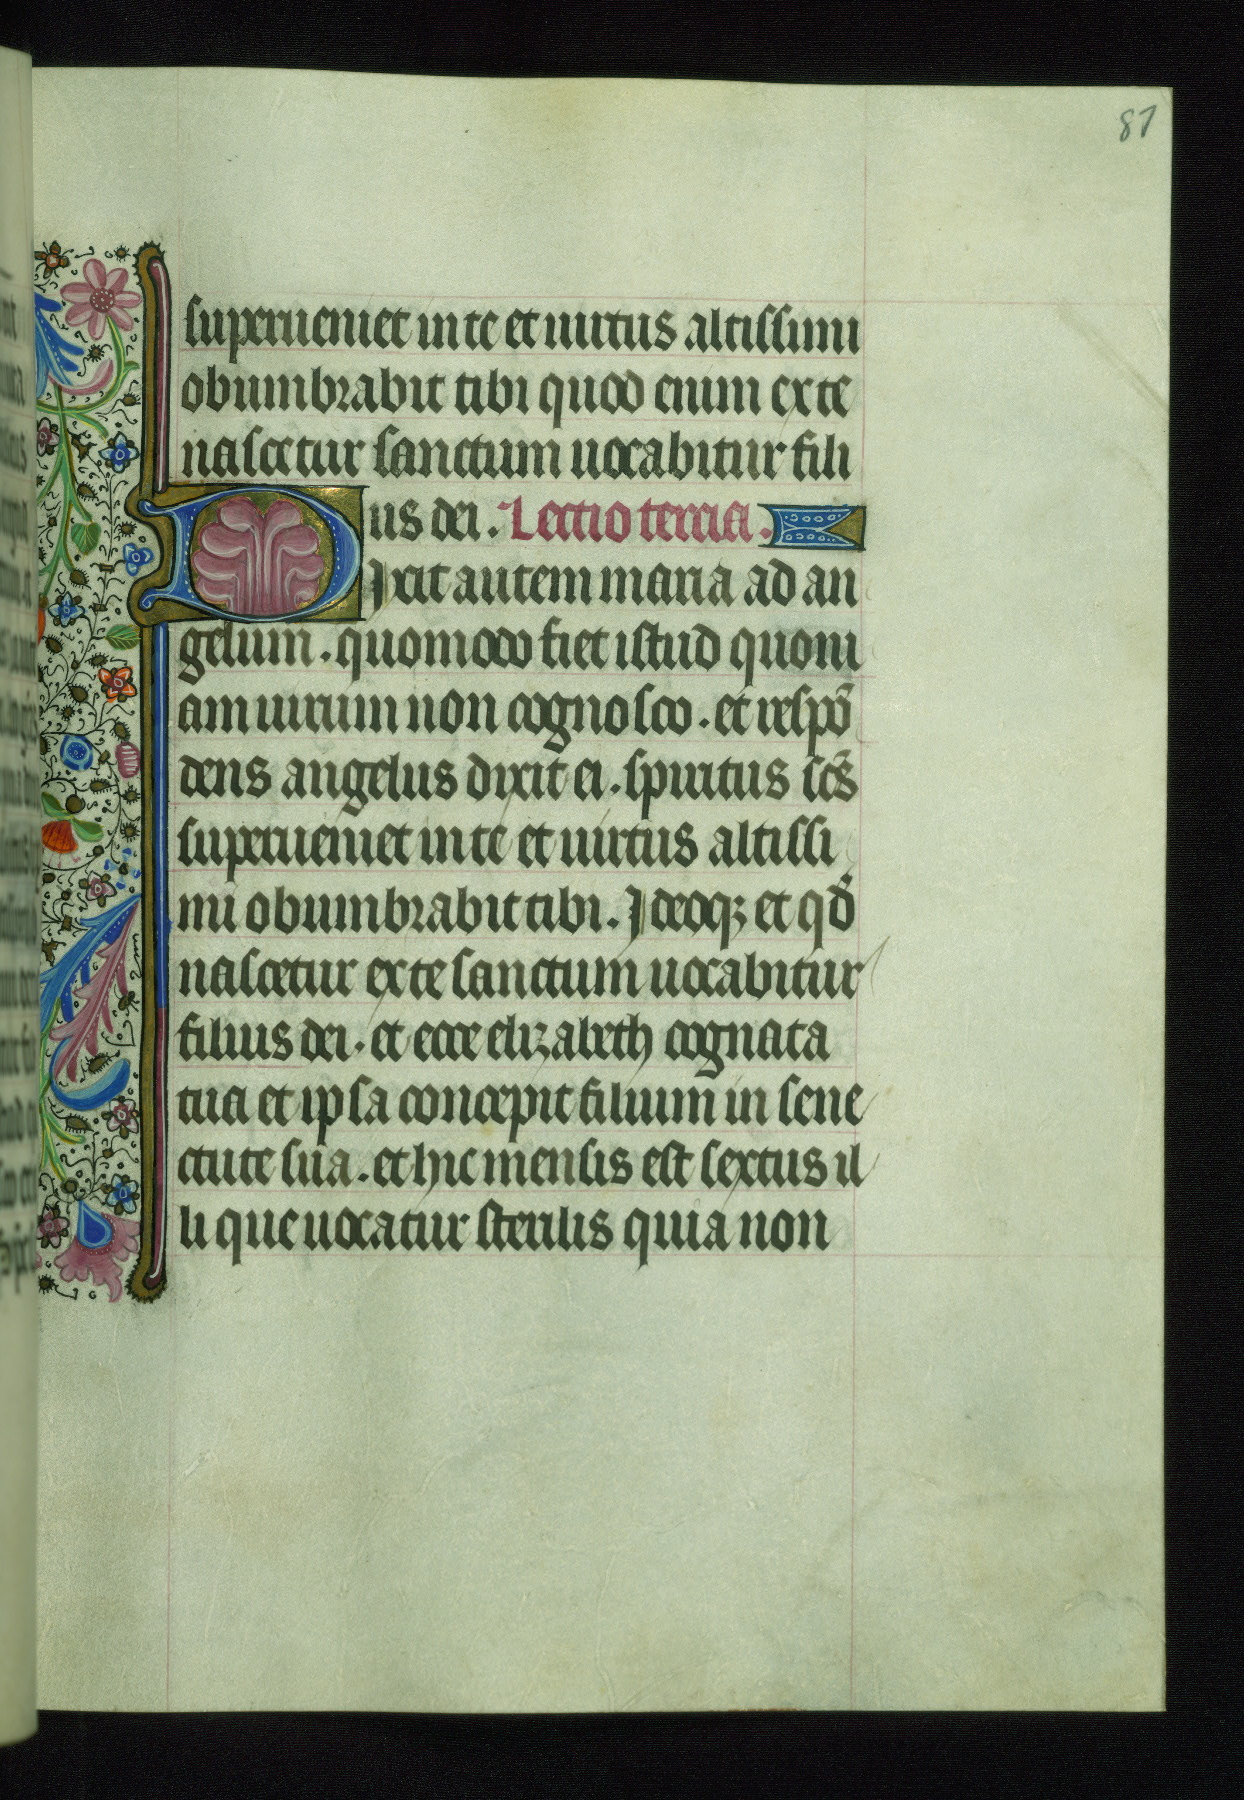 87
superueniet in te et uirtus altissimi
obumbrabit tibi quod enim ex te
nascetur sanctum uocabitur fili
us dei. Lectio tercia.
Dixit autem maria ad an
gelum. quomodo fiet istud quoni
am uirum non cognosco. et respõ
dens angelus dixit ei. spiritus sc̃s
superueniet in te et uirtus altissi
mi obumbrabit tibi. Ideoqꝫ et qd̃
nascetur ex te sanctum uocabitur
filius dei. et ecce elizabeth cognata
tua et ipsa concepit filium in sene
ctute sua. et hic mensis est sextus il
li que uocatur sterilis quia non